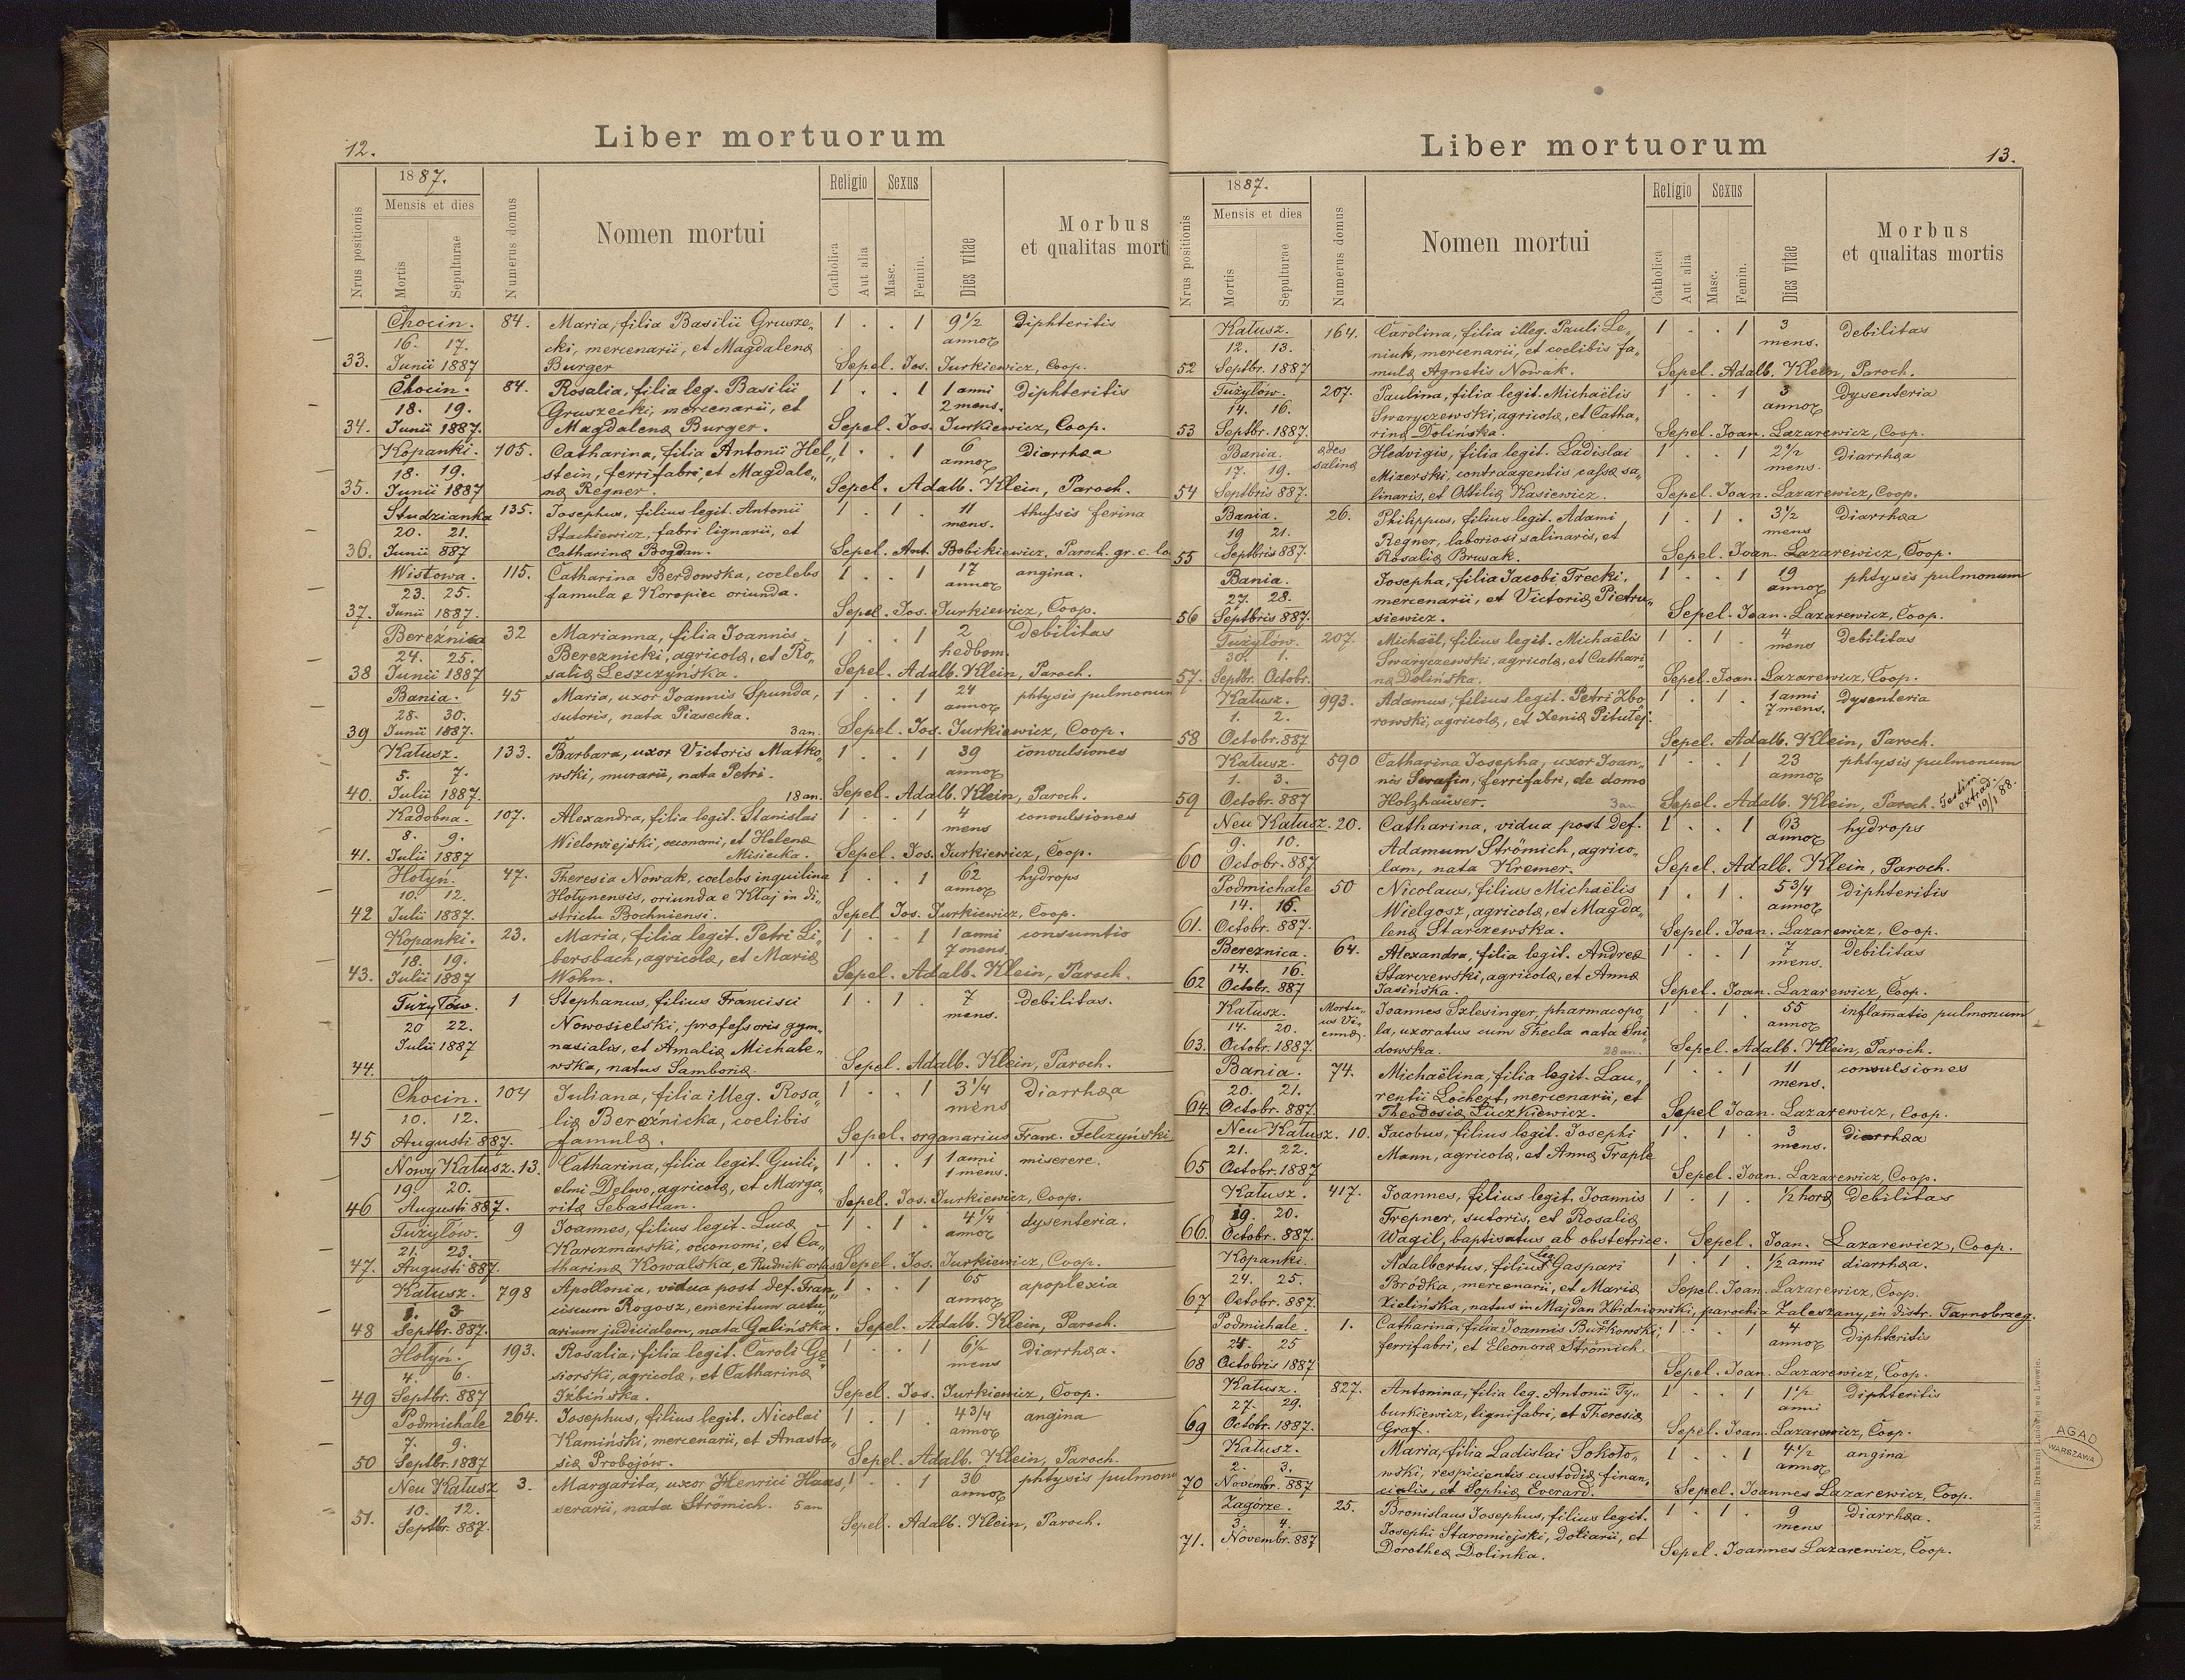 12.
Liber mortuorum
1887.
Mensis et dies
Religio
Sexus
Nrus positionis
Mortis
Sepulturae
Numerus domus
Nomen mortui
Catholica
Aut alia
Masc.
Femin.
Dies vitae
Morbus
et qualitas morti
Chocin. 84. Maria, filia Basilii Grusze„ 1 . . 1 9 1/2 Diphteritis
16. 17. cki, mercenarii, et Magdalenæ annor
33. Junii 1887 Burger Sepel. Jos. Jurkiewicz, Coop.
Chocin. 84. Rosalia, filia leg. Basilii 1 . . 1 1 anni Diphteritis
18. 19. Gruszecki, mercenarii, et 2 mens.
34. Junii 1887. Magdalenæ Burger. Sepel. Jos. Jurkiewicz, Coop.
Kopanki. 105. Catharina, filia Antonii Hel„ 1 . . 1 6 Diarrhæa
18. 19. stein, ferrifabri, et Magdale„ annor
35. Junii 1887 næ Regner. Sepel. Adalb. Klein, Paroch.
Studzianka 135. Josephus, filius legit. Antonii 1 . 1 . 11 thussis ferina
20. 21. Stachiewicz, fabri lignarii, et mens.
36. Junii 887 Catharinæ Bogdan. Sepel. Ant. Bobikiewicz, Paroch. gr. c. lo
Wistowa. 115. Catharina Berdowska, coelebs 1 . . 1 17 angina.
23. 25. famula e Koropiec oriunda. annor
37. Junii 1887. Sepel. Jos. Jurkiewicz, Coop.
Bereźnica 32 Marianna, filia Joannis 1 . . 1 2 Debilitas
24. 25. Bereznicki, agricolæ, et Ro„ hedbom.
38 Junii 1887 saliæ Leszczyńska. Sepel. Adalb. Klein, Paroch.
Bania. 45 Maria, uxor Joannis Spunda, 1 . . 1 24 phtysis pulmonum
28. 30. sutoris, nata Piasecka. annor
39 Junii 1887. 3 an. Sepel. Jos. Jurkiewicz, Coop.
Kałusz. 133. Barbara, uxor Victoris Matko„ 1 . . 1 39 convulsiones
5. 7. wski, murarii, nata Petri. annor
40. Julii 1887. 18 an. Sepel. Adalb. Klein, Paroch.
Kadobna. 107. Alexandra, filia legit. Stanislai 1 . . 1 4 convulsiones
8. 9. Wielowiejski, oeconomi, et Helenæ mens
41. Julii 1887 Misiecka. Sepel. Jos. Jurkiewicz, Coop.
Hołyń. 47. Theresia Nowak, coelebs inquilina 1 . . 1 62 hydrops
10. 12. Hołynensis, oriunda e Kłaj in di„ annor
42 Julii 1887. strictu Bochniensi. Sepel. Jos. Jurkiewicz, Coop.
Kopanki. 23. Maria, filia legit. Petri Li„ 1 . . 1 1 anni consumtio
18. 19. bersbach, agricolæ, et Mariæ 7 mens.
43. Julii 1887 Wohn. Sepel. Adalb. Klein, Paroch.
Tużyłów. 1 Stephanus, filius Francisci 1 . 1 . 7 Debilitas.
20 22. Nowosielski, professoris gym„ mens.
Julii 1887 nasialis, et Amaliæ Michale„
44. wska, natus Samboriæ. Sepel. Adalb. Klein, Paroch.
Chocin. 104 Juliana, filia illeg. Rosa„ 1 . . 1 3 1/4 Diarrhæa
10. 12. liæ Bereźnicka, coelibis mens
45 Augusti 887. famulæ. Sepel. organarius Franc. Felczyński
Nowy Kałusz. 13. Catharina, filia legit. Guili„ 1 . . 1 1 anni miserere.
19. 20. elmi Delwo, agricolæ, et Marga„ 1 mens.
46 Augusti 887. ritæ Sebastian. Sepel. Jos. Jurkiewicz, Coop.
Tużyłów. 9 Joannes, filius legit. Lucæ 1 . 1 . 4 1/4 dysenteria.
21. 23. Karczmarski, oeconomi, et Ca„ annor
47. Augusti 887. tharinæ Kowalska, e Rudnik ortus Sepel. Jos. Jurkiewicz, Coop.
Kałusz. 798 Apollonia, vidua post def. Fran„ 1 . . 1 65 apoplexia
1. 3 ciscum Rogosz, emeritum actu„ annor
48 Septbr. 887. arium judicialem, nata Galińska. Sepel. Adalb. Klein, Paroch.
Hołyń. 193. Rosalia, filia legit. Caroli Gę„ 1 . . 1 6 1/2 Diarrhæa.
4. 6. siorski, agricolæ, et Catharinæ mens
49 Septbr. 887 Izbińska. Sepel. Jos. Jurkiewicz, Coop.
Podmichale 264. Josephus, filius legit. Nicolai 1 . 1 . 4 3/4 angina
7. 9. Kamiński, mercenarii, et Anasta„ annor
50 Septbr. 1887 siæ Probojow. Sepel. Adalb. Klein, Paroch.
Neu Kałusz 3. Margarita, uxor Henrici Haas, 1 . . 1 36 phtysis pulmonu
10. 12. serarii, nata Strömich. 5 an annor
51. Septbr. 887. Sepel. Adalb. Klein, Paroch.
Liber mortuorum
13.
1887.
Mensis et dies
Religio
Sexus
Nrus positionis
Mortis
Sepulturae
Numerus domus
Nomen mortui
Catholica
Aut alia
Masc.
Femin.
Dies vitae
Morbus
et qualitas mortis
Kałusz. 164. Carolina, filia illeg. Pauli Le„ 1 . . 1 3 debilitas
12. 13. niuk, mercenarii, et coelibis fa„ mens.
52 Septbr. 1887 mulæ Agnetis Nowak. Sepel. Adalb. Klein, Paroch.
Tużyłów. 207. Paulina, filia legit. Michaëlis 1 . . 1 3 Dysenteria
14. 16. Swaryczewski, agricolæ, et Catha„ annor
53 Septbr. 1887. rinæ Dolińska. Sepel. Joan. Lazarewicz, Coop.
Bania. ædes Hedvigis, filia legit. Ladislai 1 . . 1 2 1/2 diarrhæa
17. 19. salinæ Mizerski, contraagentis cassæ sa„ mens.
54 Septbris 887. linaris, et Ottiliæ Kasiewicz. Sepel. Joan. Lazarewicz, Coop.
Bania. 26. Philippus, filius legit. Adami 1 . 1 . 3 1/2 Diarrhæa
19 21. Regner, laboriosi salinaris, et mens
55 Septbris 887. Rosaliæ Brusak. Sepel. Joan. Lazarewicz, Coop.
Bania. Josepha, filia Jacobi Trecki, 1 . . 1 19 phtysis pulmonum
27. 28. mercenarii, et Victoriæ Pietru„ annor
56 Septbris 887. siewicz. Sepel. Joan. Lazarewicz, Coop.
Tużyłów. 207. Michaël, filius legit. Michaëlis 1 . 1 . 4 Debilitas
30. 1. Swaryczewski, agricolæ, et Cathari„ mens
57. Septbr. Octobr. næ Dolińska. Sepel. Joan. Lazarewicz, Coop.
Kałusz. 993. Adamus, filius legit. Petri Zbo„ 1 . 1 . 1 anni Dysenteria
1. 2. rowski, agricolæ, et Xeniæ Pitułej. 7 mens.
58 Octobr. 887 Sepel. Adalb. Klein, Paroch.
Kałusz. 590 Catharina Josepha, uxor Joan„ 1 . . 1 23 phtysis pulmonum
1. 3. nis Serafin, ferrifabri, de domo annor
59 Octobr. 887 Holzhaüser. 3 an Sepel. Adalb. Klein, Paroch. Testim. extrad. 19/1 88.
Neu Kałusz. 20. Catharina, vidua post def. 1 . . 1 63 hydrops
9. 10. Adamum Strömich, agrico„ annor
60 Octobr. 887 lam, nata Kremer. Sepel. Adalb. Klein, Paroch.
Podmichale 50 Nicolaus, filius Michaëlis 1 . 1 . 5 3/4 diphteritis
14. 16. Wielgosz, agricolæ, et Magda„ annor
61. Octobr. 887. lenæ Starczewska. Sepel. Joan. Lazarewicz, Coop.
Bereznica. 64. Alexandra, filia legit. Andreæ 1 . . 1 7 debilitas
14. 16. Starczewski, agricolæ, et Annæ mens.
62 Octobr. 887 Jasińska. Sepel. Joan. Lazarewicz, Coop.
Kałusz. Mortu„ Joannes Szlesinger, pharmacopo„ 1 . 1 . 55 inflamatio pulmonum
14. 20. us Vi„ la, uxoratus cum Thecla nata Sni„ annor
63. Octobr. 1887. ennæ. dowska. 28 an. Sepel. Adalb. Klein, Paroch.
Bania. 74. Michaëlina, filia legit. Lau„ 1 . . 1 11 convulsiones
20. 21. rentii Lochert, mercenarii, et mens.
64. Octobr. 887. Theodosiæ Łuczkiewicz. Sepel Joan. Lazarewicz, Coop.
Neu Kałusz. 10. Jacobus, filius legit. Josephi 1 . 1 . 3 diarrhæa
21. 22. Mann, agricolæ, et Annæ Traple mens.
65 Octobr. 1887 Sepel. Joan. Lazarewicz, Coop.
Kałusz. 417. Joannes, filius legit. Joannis 1 . 1 . 1/2 horæ Debilitas
19. 20. Trepner, sutoris, et Rosaliæ
66. Octobr. 887. Wagil, baptisatus ab obstetrice. Sepel. Joan. Lazarewicz, Coop.
Kopanki. Adalbertus, filius leg. Gaspari 1 . 1 . 1/2 anni diarrhæa.
24. 25. Bródka, mercenarii, et Mariæ Sepel. Joan. Lazarewicz, Coop.
67 Octobr. 887. Zielińska, natus in Majdan Zbidniowski, parochia Zaleszany, in distr. Tarnobrzeg.
Podmichale. 1. Catharina, filia Joannis Burkowski, 1 . . 1 4 diphteritis
24. 25 ferrifabri, et Eleonoræ Strömich. annor
68 Octobris 1887 Sepel. Joan. Lazarewicz, Coop.
Kałusz. 827. Antonina, filia leg. Antonii Ty„ 1 . . 1 1 1/2 diphteritis
27. 29. burkiewicz, lignifabri, et Theresiæ anni
69 Octobr. 1887. Graf. Sepel. Joan. Lazarewicz, Coop.
Kałusz. Maria, filia Ladislai Sokoło„ 1 . . 1 4 1/2 angina
2. 3. wski, respicientis custodiæ finan„ annor
70 Novembr. 887 cialis, et Sophiæ Everard. Sepel. Joannes Lazarewicz, Coop.
Zagórze. 25. Bronislaus Josephus, filius legit. 1 . 1 . 9 Diarrhæa.
3. 4. Josephi Staromiejski, doliarii, et mens
71. Novembr. 887 Dorotheæ Dolinka. Sepel. Joannes Lazarewicz, Coop.
Nakładem Drukarni Ludowej we Lwowie.
AGAD
WARSZAWA